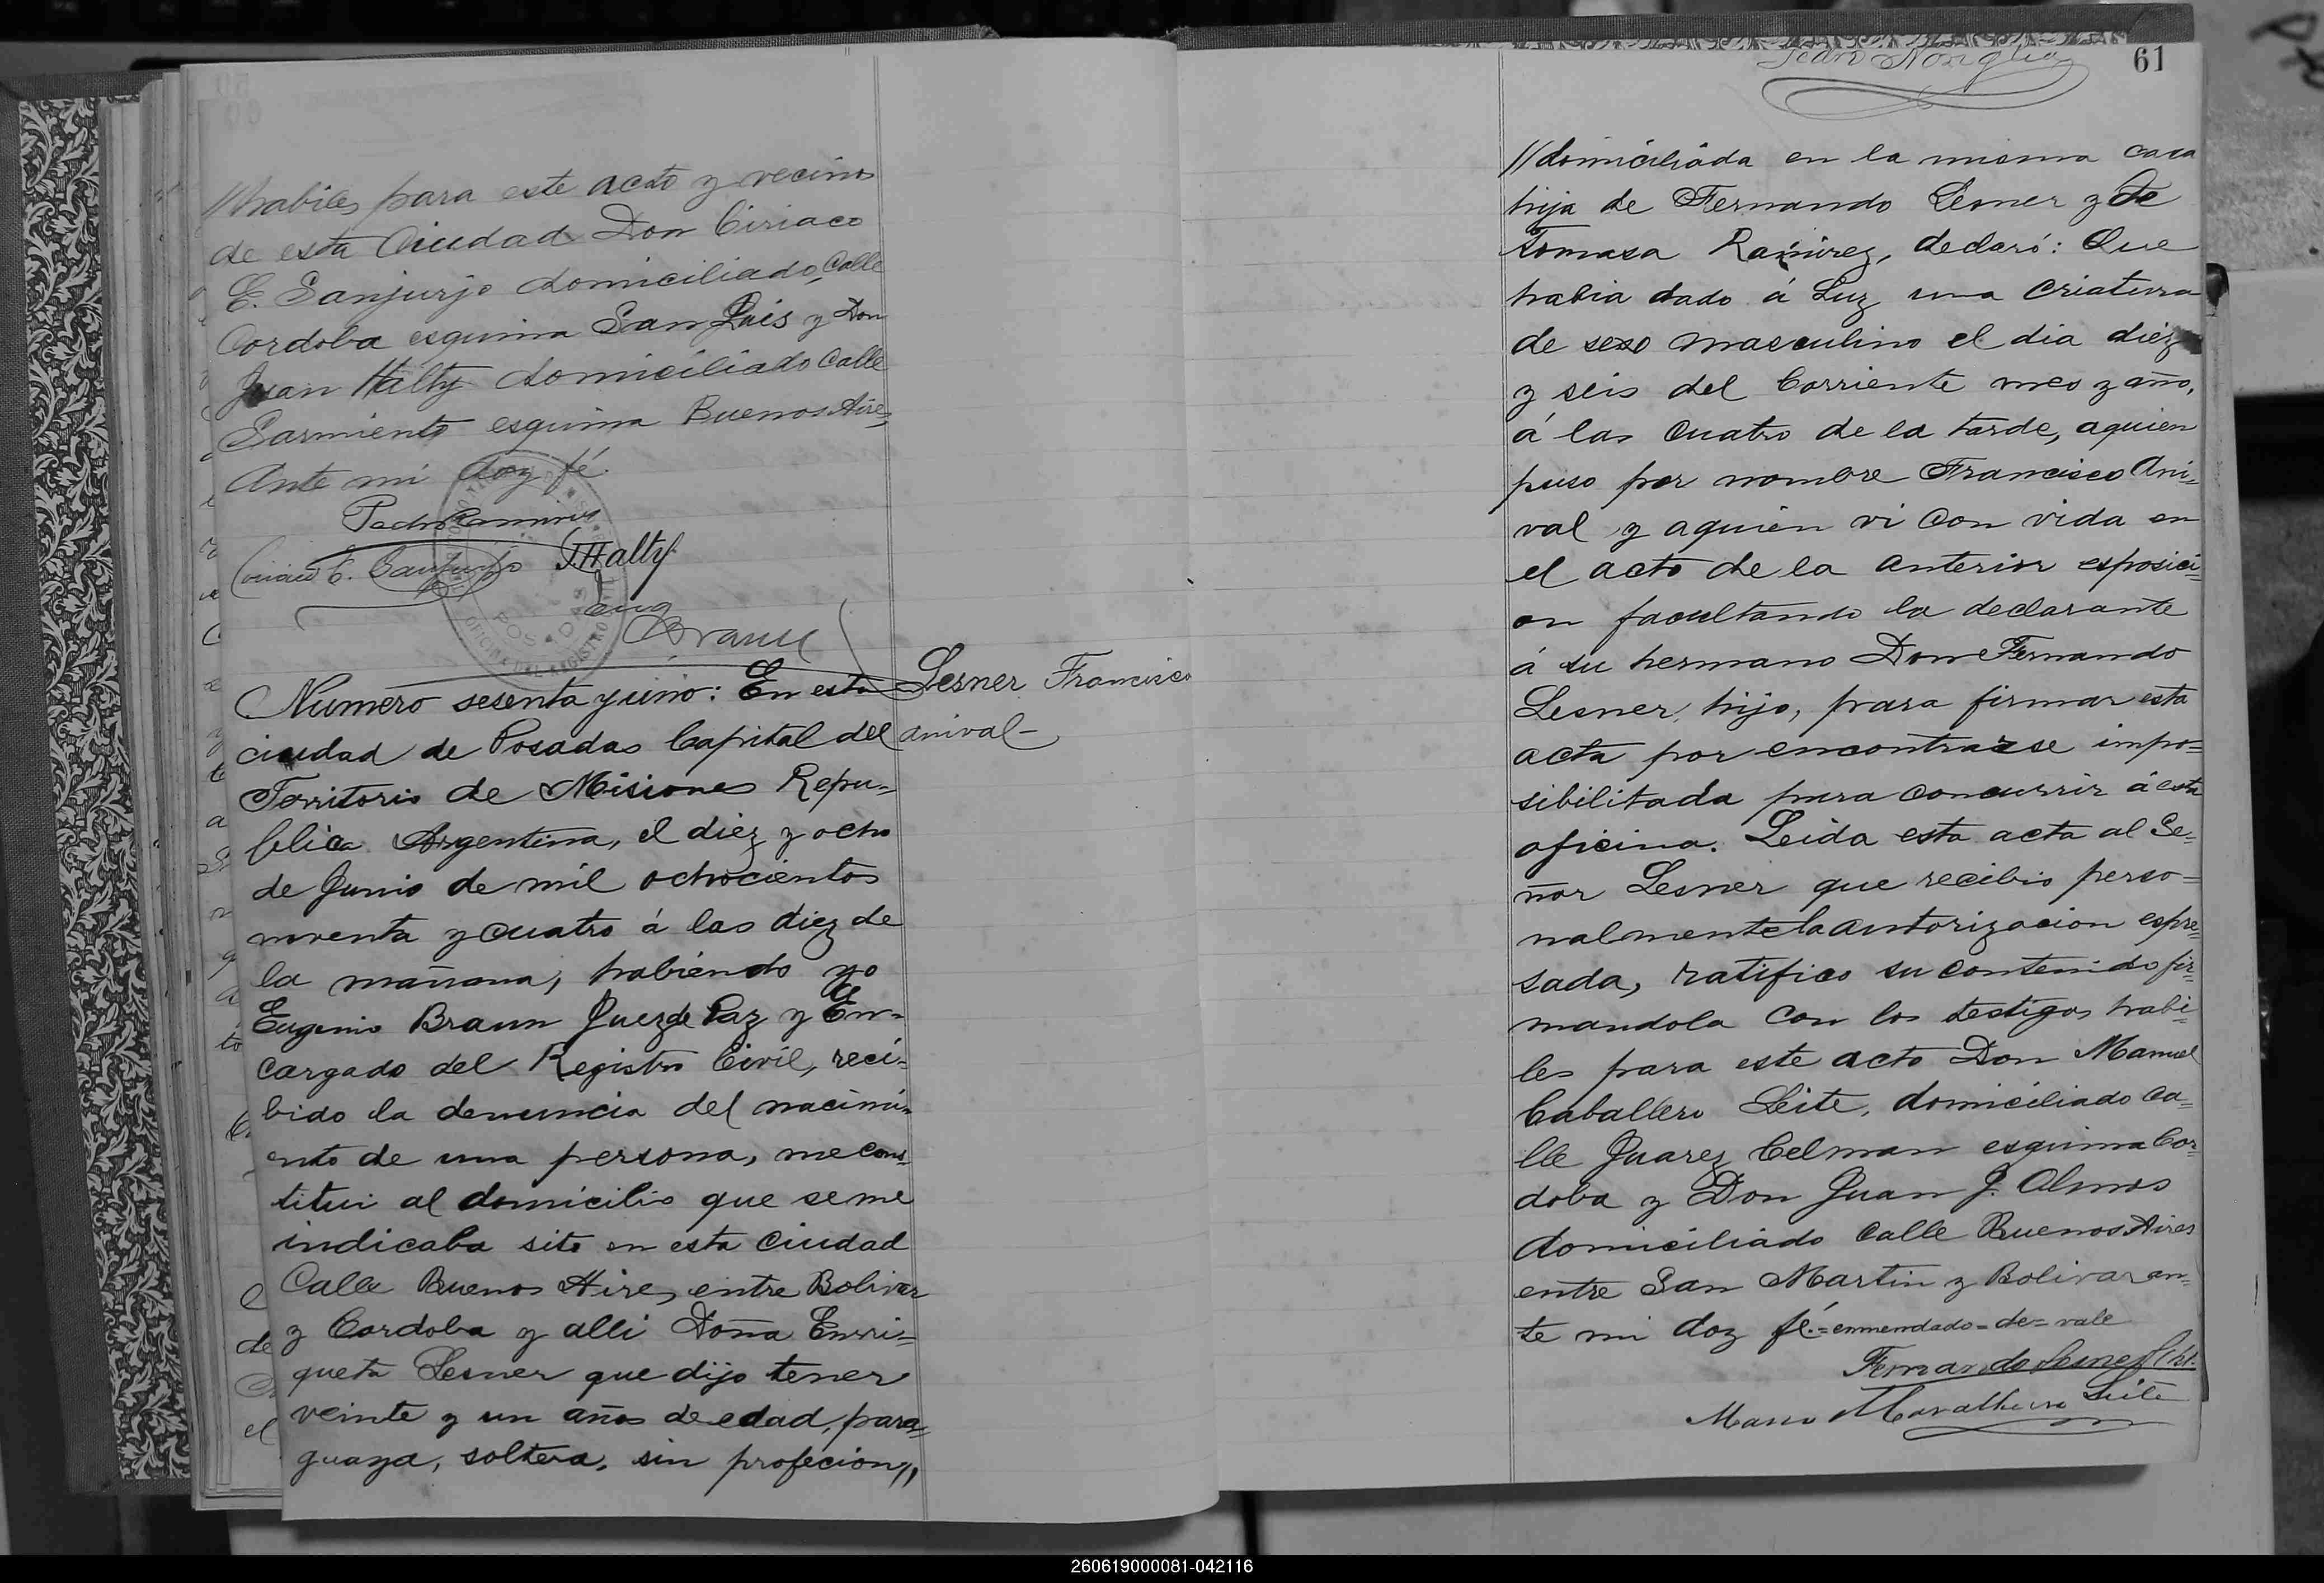 //habiles para este acto y vecinos
de esta Ciudad Don Ciriaco
E. Sanjurjo domiciliado, Calle
Cordoba esquina San Luis y Don
Juan Halty domiciliado Calle
Sarmiento esquina Buenos Aires,
Ante mi doy fé.
Pedro Ramirez
Ciriaco E. Sanjurjo J. Halty
Eug
Braun
Numero sesenta y uno: En esta
ciudad de Posadas Capital del
Territorio de Misiones Repu-
blica Argentina, el diez y ocho
de Junio de mil ochocientos
noventa y cuatro á las diez de
la mañana, habiendo yo
Eugenio Braun Juez de Paz y En-
cargado del Registro Civil, reci-
bido la denuncia del nacimi-
ento de una persona, me cons-
titui al domicilio que se me
indicaba sito en esta Ciudad
Calle Buenos Aires, entre Bolivar
y Cordoba y alli Doña Enrri-
queta Lesner que dijo tener
veinte y un años de edad, para-
guaya, soltera, sin profecion,,
Lesner Francisco
anival-
61
//domiciliada en la misma casa
hija de Fernando Lesner y de
Tomasa Ramirez, declaró: Que
habia dado á Luz una Criatura
de sexo masculino el dia diez
y seis del Corriente mes y año,
á las Cuatro de la tarde, aquien
puso por nombre Francisco Ani-
val y aquien vi con vida en
el acto de la anterior esposici-
on facultando la declarante
á su hermano Don Fernando
Lesner, hijo, para firmar esta
acta por encontrarse impo-
sibilitada para concurrir á esta
oficina. Leida esta acta al Se-
ñor Lesner que recibio perso-
nalmente la autorizacion espre-
sada, ratifico su contenido fir-
mandola con los testigos habi-
les para este acto Don Manuel
Caballero Leite, domiciliado Ca-
lle Juarez Celman esquina Cor-
doba y Don Juan J. Olmos
domiciliado Calle Buenos Aires
entre San Martin y Bolivar an-
te mi doy fé.=enmendado=de=vale
Fernando Lesner
Leite
260619000081-042116